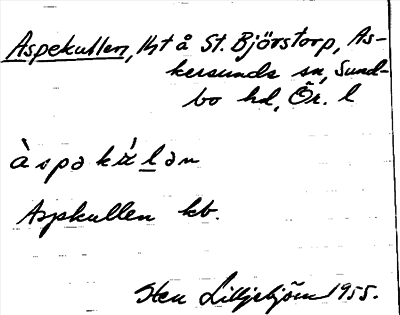 Aspekullen, lht å St. Björstorp, As-
kersunds sn, Sund-
bo hd, Ör. l
Aspkullen kb.
Sten Lilljebjörn 1955.